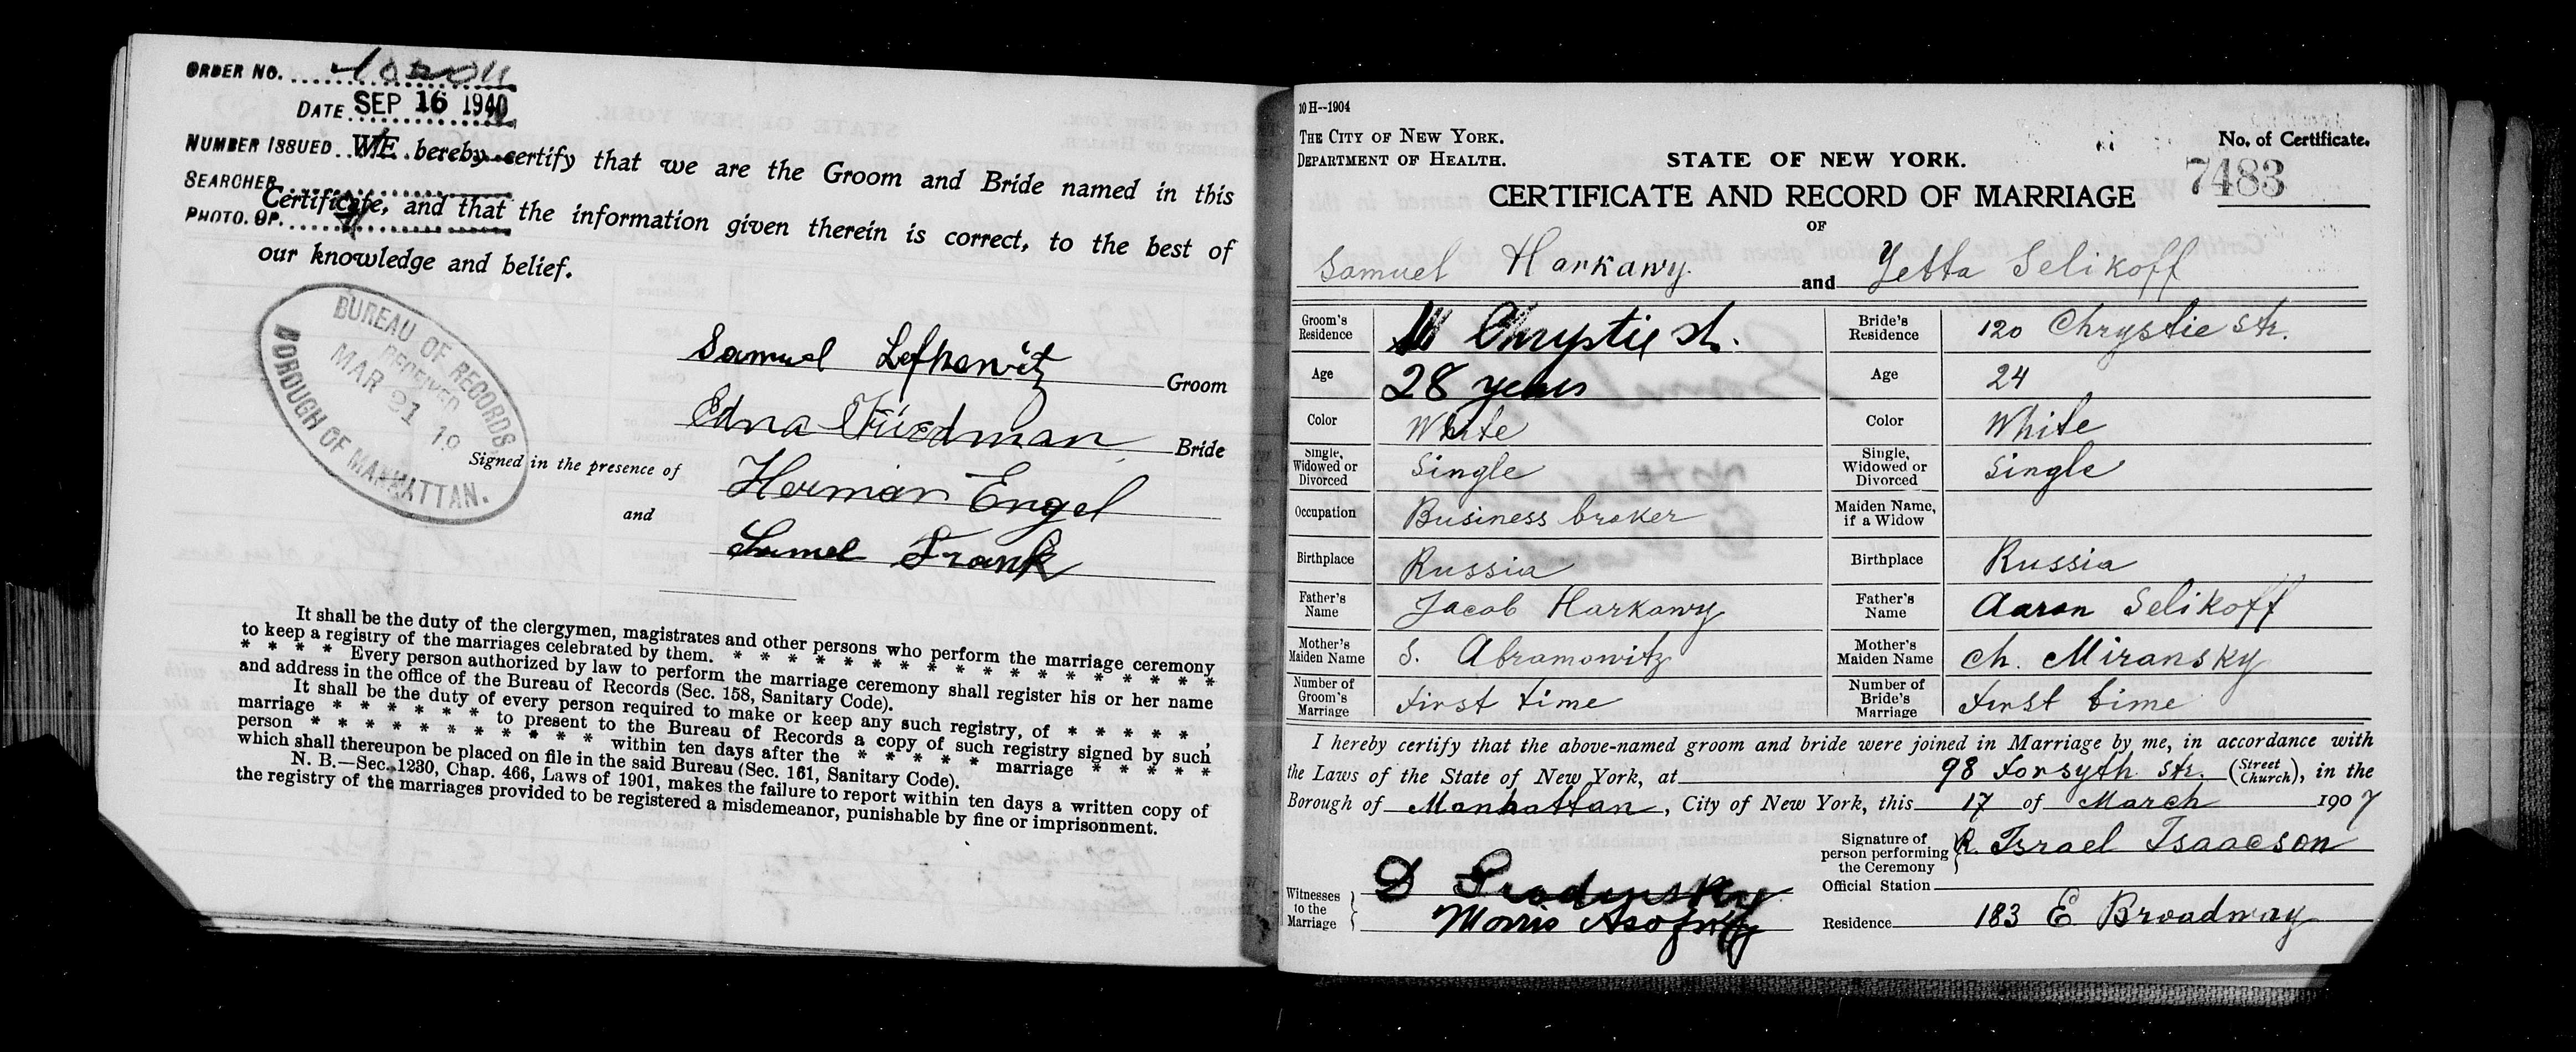 ORDER NO.
DATE SEP 16 1940
NUMBER ISSUED
SEARCHER
PHOTO. OP.
WE hereby certify that we are the Groom and Bride named in this
Certificate, and that the information given therein is correct, to the best of
our knowledge and belief.
BUREAU OF RECORDS
RECEIVED
MAR 21 19
BOROUGH OF MANHATTAN.
Samuel Lefkowitz Groom
Edna Friedman Bride
Signed in the presence of Herman Engel
and Frank
It shall be the duty of the clergymen, magistrates and other persons who perform the marriage ceremony
to keep a registry of the marriages celebrated by them. * * * * * * * * * * * * * * * * * *
* * * * Every person authorized by law to perform the marriage ceremony shall register his or her name
and address in the office of the Bureau of Records (Sec. 158, Sanitary Code).
It shall be the duty of every person required to make or keep any such registry, of * * * * * ,
marriage * * * * * * to present to the Bureau of Records a copy of such registry signed by such
person * * * * * * * * * * within ten days after the * * * * * marriage * * * * *
which shall thereupon be placed on file in the said Bureau (Sec. 161, Sanitary Code).
N. B.—Sec. 1230, Chap. 466, Laws of 1901, makes the failure to report within ten days a written copy of
the registry of the marriages provided to be registered a misdemeanor, punishable by fine or imprisonment.
10 H--1904
THE CITY OF NEW YORK.
DEPARTMENT OF HEALTH.
STATE OF NEW YORK.
No. of Certificate.
7483
CERTIFICATE AND RECORD OF MARRIAGE
OF
Samuel Harkawy and Yetta Selikoff
Groom's Residence Chrystie st. Bride's Residence 120 Chrystie Str.
Age 28 years Age 24
Color White Color White
Single, Widowed or Divorced Single Single, Widowed or Divorced Single
Occupation Business broker Maiden Name, if a Widow
Birthplace Russia Birthplace Russia
Father's Name Jacob Harkawy Father's Name Aaron Selikoff
Mother's Maiden Name S. Abramowitz Mother's Maiden Name Ch. Miransky
Number of Groom's Marriage First time Number of Bride's Marriage First time
I hereby certify that the above-named groom and bride were joined in Marriage by me, in accordance with
the Laws of the State of New York, at 98 Forsyth Str. (Street Church), in the
Borough of Manhattan, City of New York, this 17 of March 1907
Signature of person performing the Ceremony R. Israel Isaacson
Official Station
Witnesses to the Marriage D
Morris
Residence 183 E Broadway